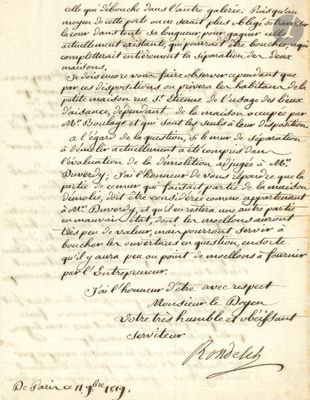 celle que débouche dans l'autre galerie. Puisqu'au
moyen de cette porte on ne serait plus obligé de traverser
la cour dans toute sa longueur pour gagner celle
actuellement existante, qui pourrait être bouchée, ce qui
complettrait entièrement la séparation des deux
maisons.
Je dois encore vous faire observer cependant que
par ces dispositions on privera les habitans de la
petite maison rue St. Etienne de l'usage des lieux
d'aisance, dépendant de la maison occupée par
Mr. Boulage et qui sont les seuls à leur disposition
A l'égard de la question, si le mur de séparation
à démolir actuellement a été compris dans
l'évaluation de la démolition adjugée à Mr.
Duverdy; J'ai l'honneur de vous répondre que la
partie de ce mur qui faisait partie de la maison
démolie, doit être considérée comme appartenant
à Mr. Duverdy, et qu'il en restera une autre partie
en mauvais état, dont les moellons auront
très peu de valeur, mais pourront servir à
boucher les ouvertures en question, en sorte
qu'il y aura peu ou point de moellons à fournir
par l'Entrepreneur.
J'ai l'honneur d'être avec respect
Monsieur le Doyen
Votre très humble et obéissant
Serviteur
Rondelet
De Paris ce 11 9bre 1819.